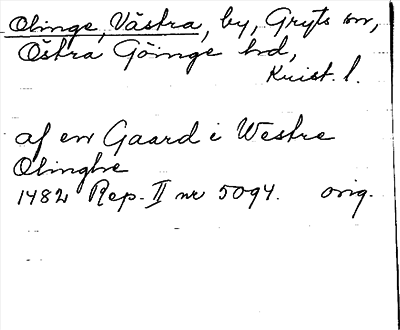 Olinge, Västra, by, Gryts sn,
Östra Göinge hd,
Krist. l.
af en Gaard i Westre
Olinghe
1482 Rep. II nr 5094. orig.